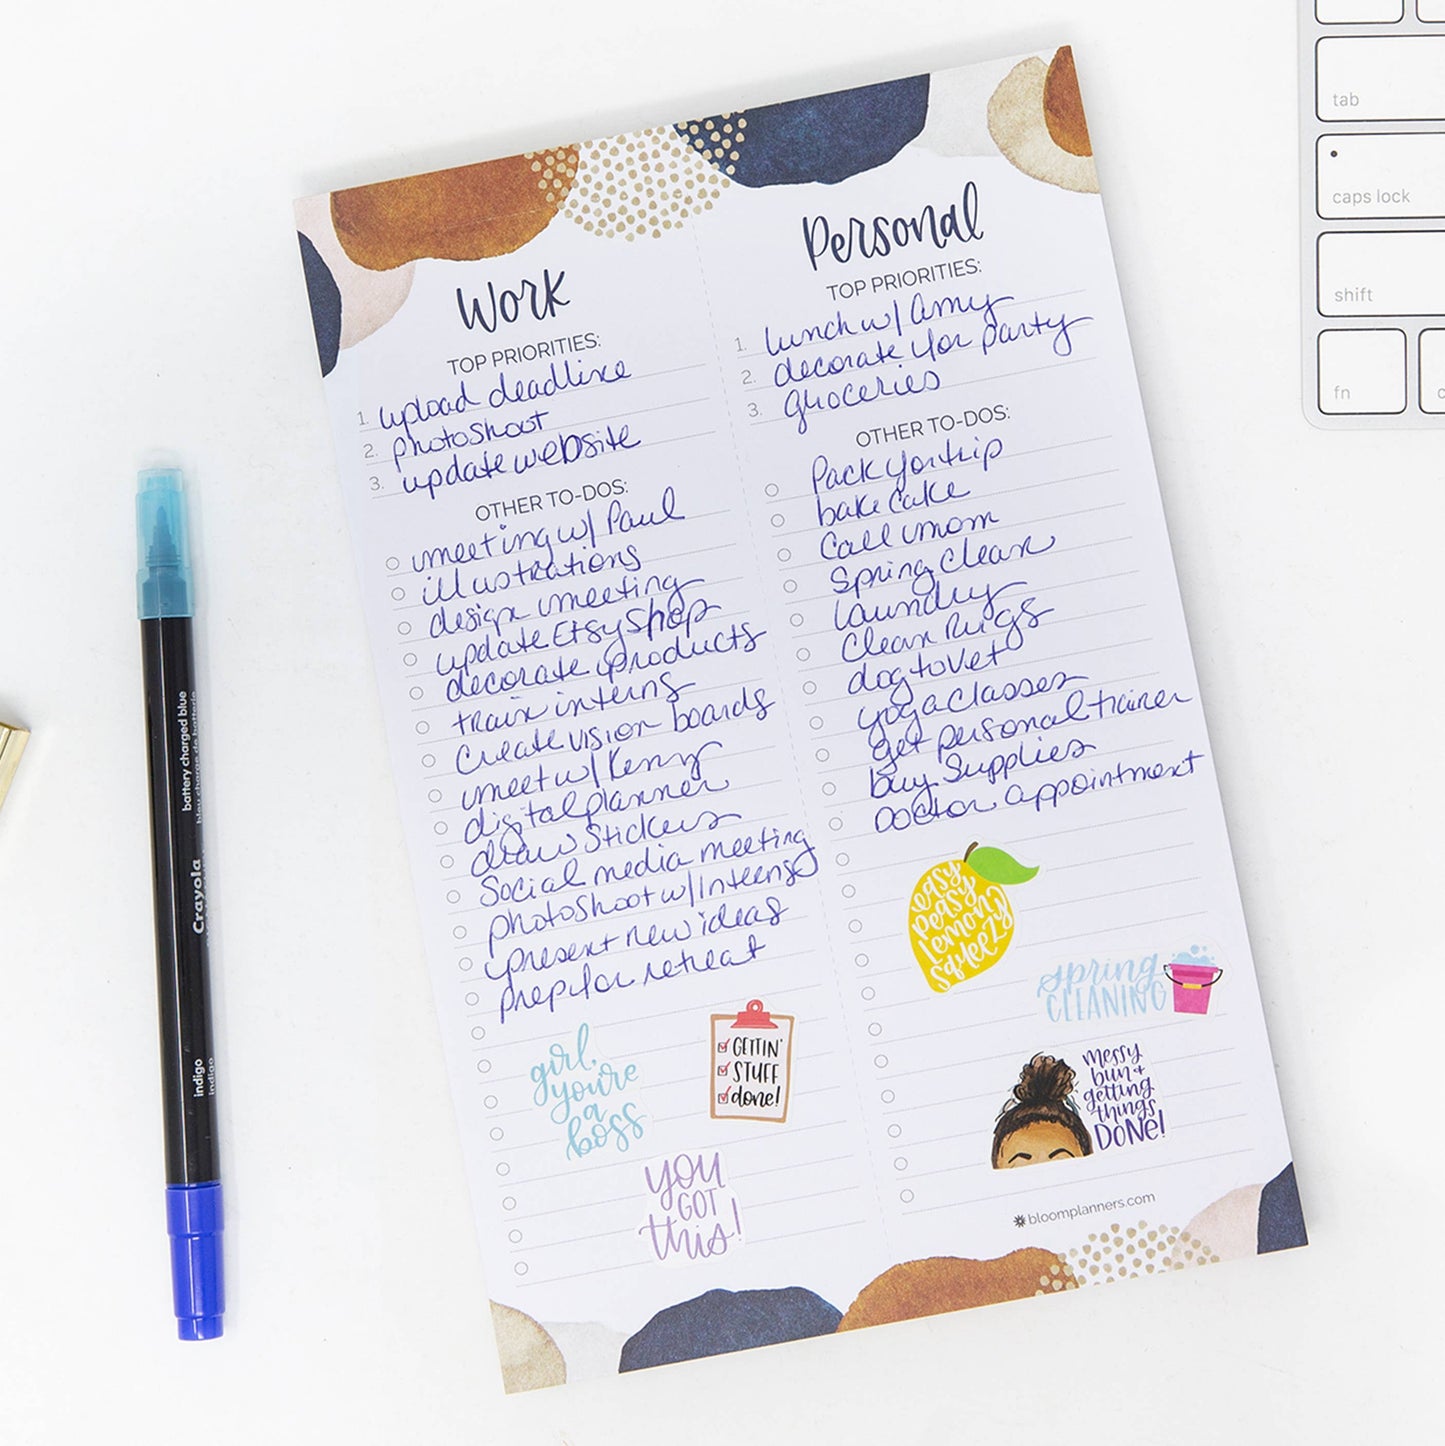 Work
TOP PRIORITIES:
1. upload deadline
2. photoshoot
3. update website
OTHER TO-DOS:
meeting w/ Paul
illustrations
design meeting
update Etsy Shop
decorate products
train interns
create vision boards
meet w/ Kenny
digital planner
draw stickers
Social media meeting
photoshoot w/ interns
present new ideas
prep for retreat
girl,
you're
a
boss
GETTIN'
STUFF
done!
YOU
GOT
this!
Personal
TOP PRIORITIES:
1. lunch w/ Amy
2. decorate for party
3. groceries
OTHER TO-DOS:
Pack for trip
bake cake
Call mom
Spring Clean
laundry
Clean Rugs
dog to vet
yoga classes
get personal trainer
buy Supplies
Doctor appointment
easy
peasy
lemon
squeezy
spring
CLEANING
messy
bun +
getting
things
DONE!
bloomplanners.com
battery charged blue
bleu charge de batterie
Crayola
indigo
indigo
tab
caps lock
shift
fn